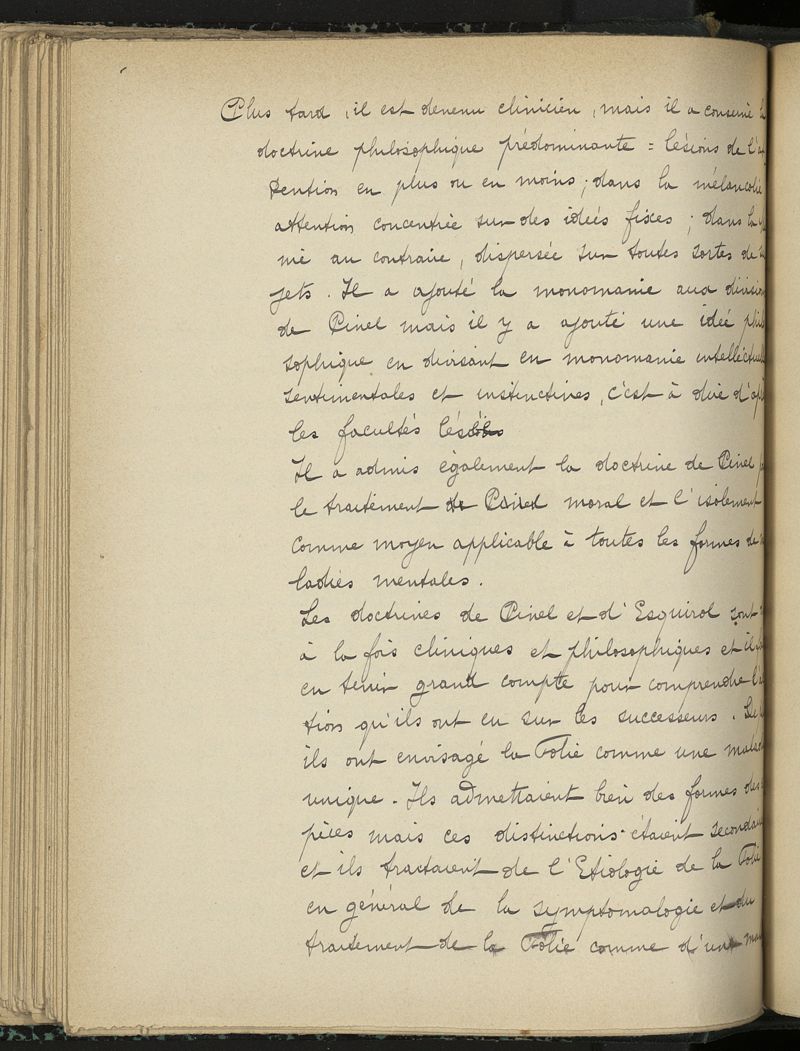 Plus tard, il est devenu clinicien, mais il a conservé la
doctrine philosophique prédominante = lésions de l'at
tention en plus ou en moins ; dans la mélancolie
attention concentrée sur des idées fixes ; dans la
nie au contraire, dispersée sur toutes sortes de
jets. Il a ajouté la monomanie aux division
de Pinel mais il y a ajouté une idée philo
sophique en divisant en monomanie intellectuel
sentimentales et instinctives, c'est à dire d'apr
les facultés lésées
Il a admis également la doctrine de Pinel
le traitement de Pinel moral et l'isolement
comme moyen applicable à toutes les formes de
ladies mentales.
Les doctrines de Pinel et d'Esquirol sont
à la fois cliniques et philosophiques et il
en tenir grand compte pour comprendre l'a
tion qu'ils ont eu sur les successeurs.
ils ont envisagé la Folie comme une malad
unique. Ils admettaient bien des formes des
pèces mais ces distinctions étaient secondair
et ils traitaient de l'Etiologie de la Folie
en général de la symptomalogie et du
traitement de la Folie comme d'une ma